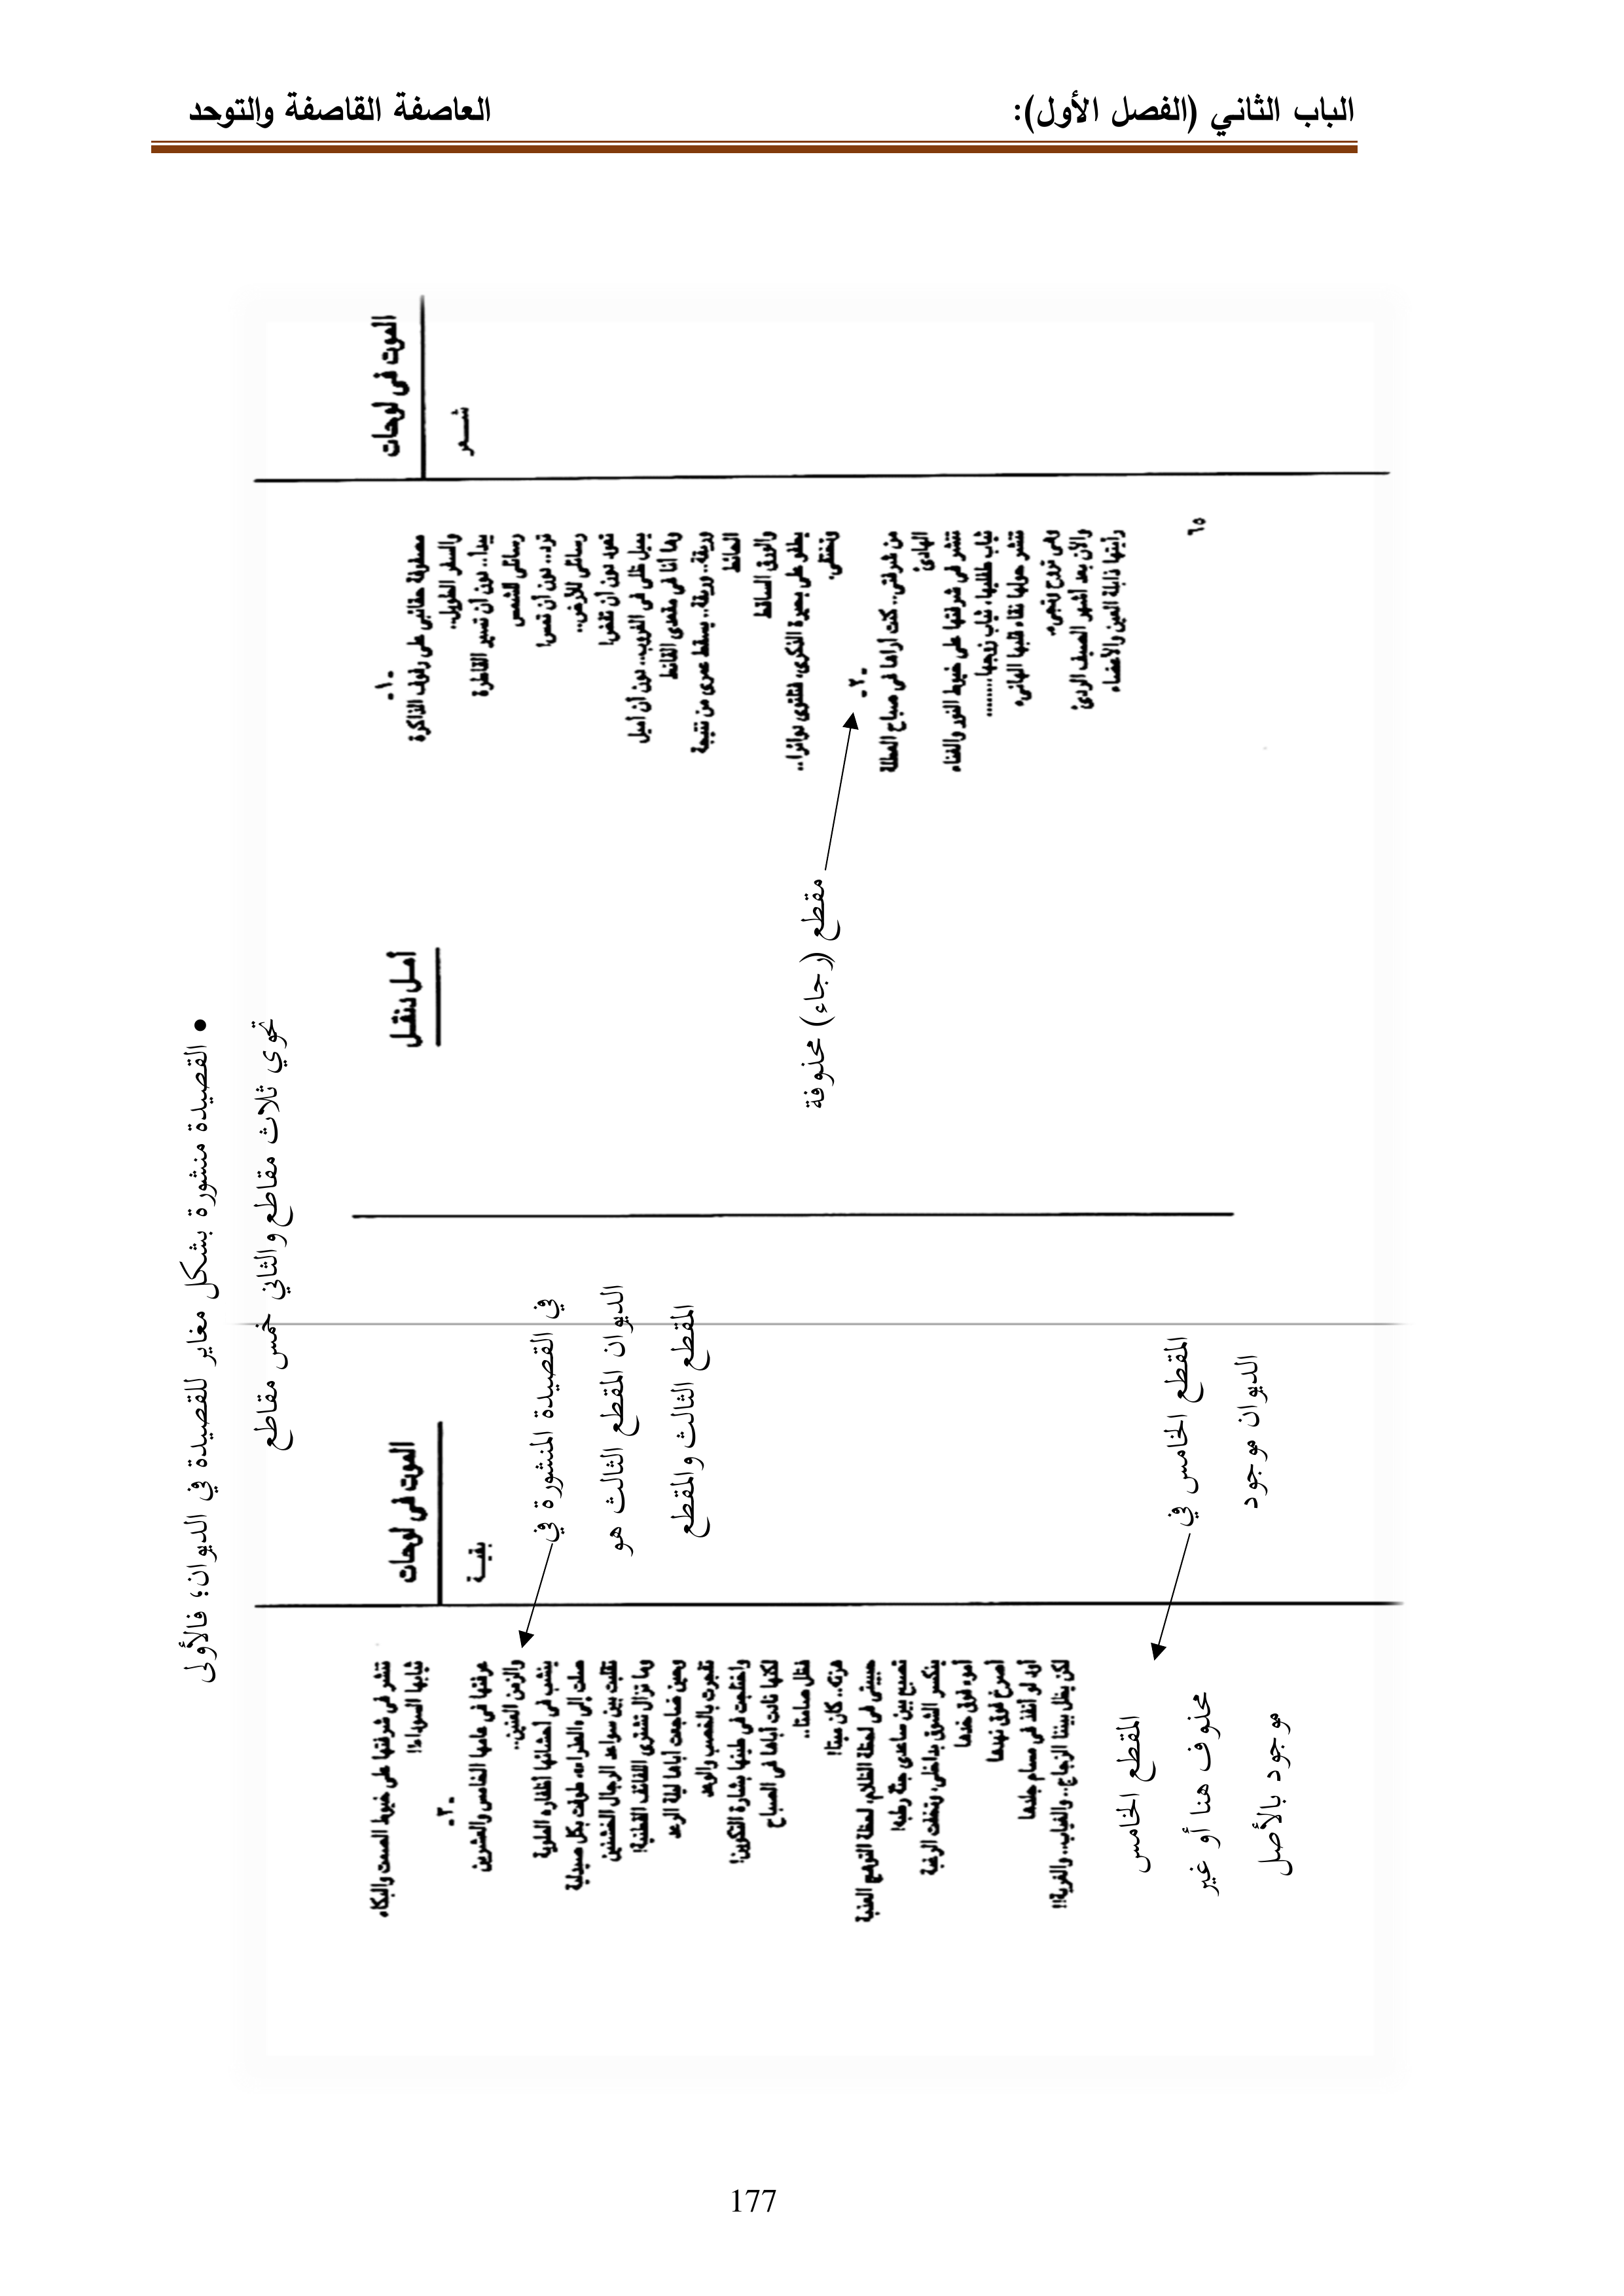 الباب الثاني (الفصل الأول):
العاصفة القاصفة والتوحد
• القصيدة منشورة بشكل مغاير للقصيدة في الديوان؛ فالأولى
تحوي ثلاث مقاطع والثاني خمس مقاطع
الموت فى لوحات
شـــعر
أمـل دنقـل
-١-
مصفوفة حقائبى على رفوف الذاكرة
والسفر الطويل..
يبدأ.. دون أن تسير القاطرة
رسائلى للشمس
ترد.. دون أن تمس!
رسائلى للأرض..
تعود دون أن تفض!
يميل ظلى فى الغروب.. دون أن أميل
وها أنا فى مقعدى القانط
وريقة.. وريقة.. يسقط عمرى من نتيجة
الحائط
والورق الساقط
يطفو على بحيرة الذكرى، فتلتوى دوائرا..
وتختفى.
مقطع (رجاء) محذوفة
-٢-
من شرفتى.. كنت أراها فى صباح العطلة
الهادئ
تنشر فى شرفتها على خيوط النور والغناء
ثياب طفليها، ثياب زوجها........
تنشر حولها نقاء قلبها الهانئ
وهى تروح وتجىء
والآن بعد أشهر الصيف الردئ
رأيتها ذابلة العين والأعضاء
٦٥
الموت فى لوحات
بقيـــة
تنشر فى شرفتها على خيوط الصمت والبكاء
ثيابها السوداء!
-٣-
عرفتها فى عامها الخامس والعشرين
والزمن العنين..
ينشب فى أحشائها أظفاره الملوية
صلت إلى العذراء، طوفت بكل صيدلية
تقلبت بين سواعد الرجال الخشنين
وما تزال تشترى اللفائف القطنية!
وحين ضاجعت أباها ليلة الرعد
تفجرت بالخصب والوعد
واختلجت فى طينها بشارة التكوين!
لكنها نادت أباها فى الصباح
فظل صامتا..
هزته.. كان ميتا!
حبيبتى فى لحظة الظلام، لحظة التوهج العذبة
تصبح بين ساعدى جثة رطبة!
ينكسر الشوق بداخلى، وتخفت الرغبة
أموء فوق خدها
أضرع فوق نهدها
أود لو أنفذ فى مسام جلدها
لكن يظل بيننا الزجاج.. والغياب.. والغربة!!
في القصيدة المنشورة في
الديوان المقطع الثالث هو
المقطع الثالث والمقطع
المقطع الخامس في
الديوان موجود
المقطع الخامس
محذوف هنا أو غير
موجود بالأصل
177